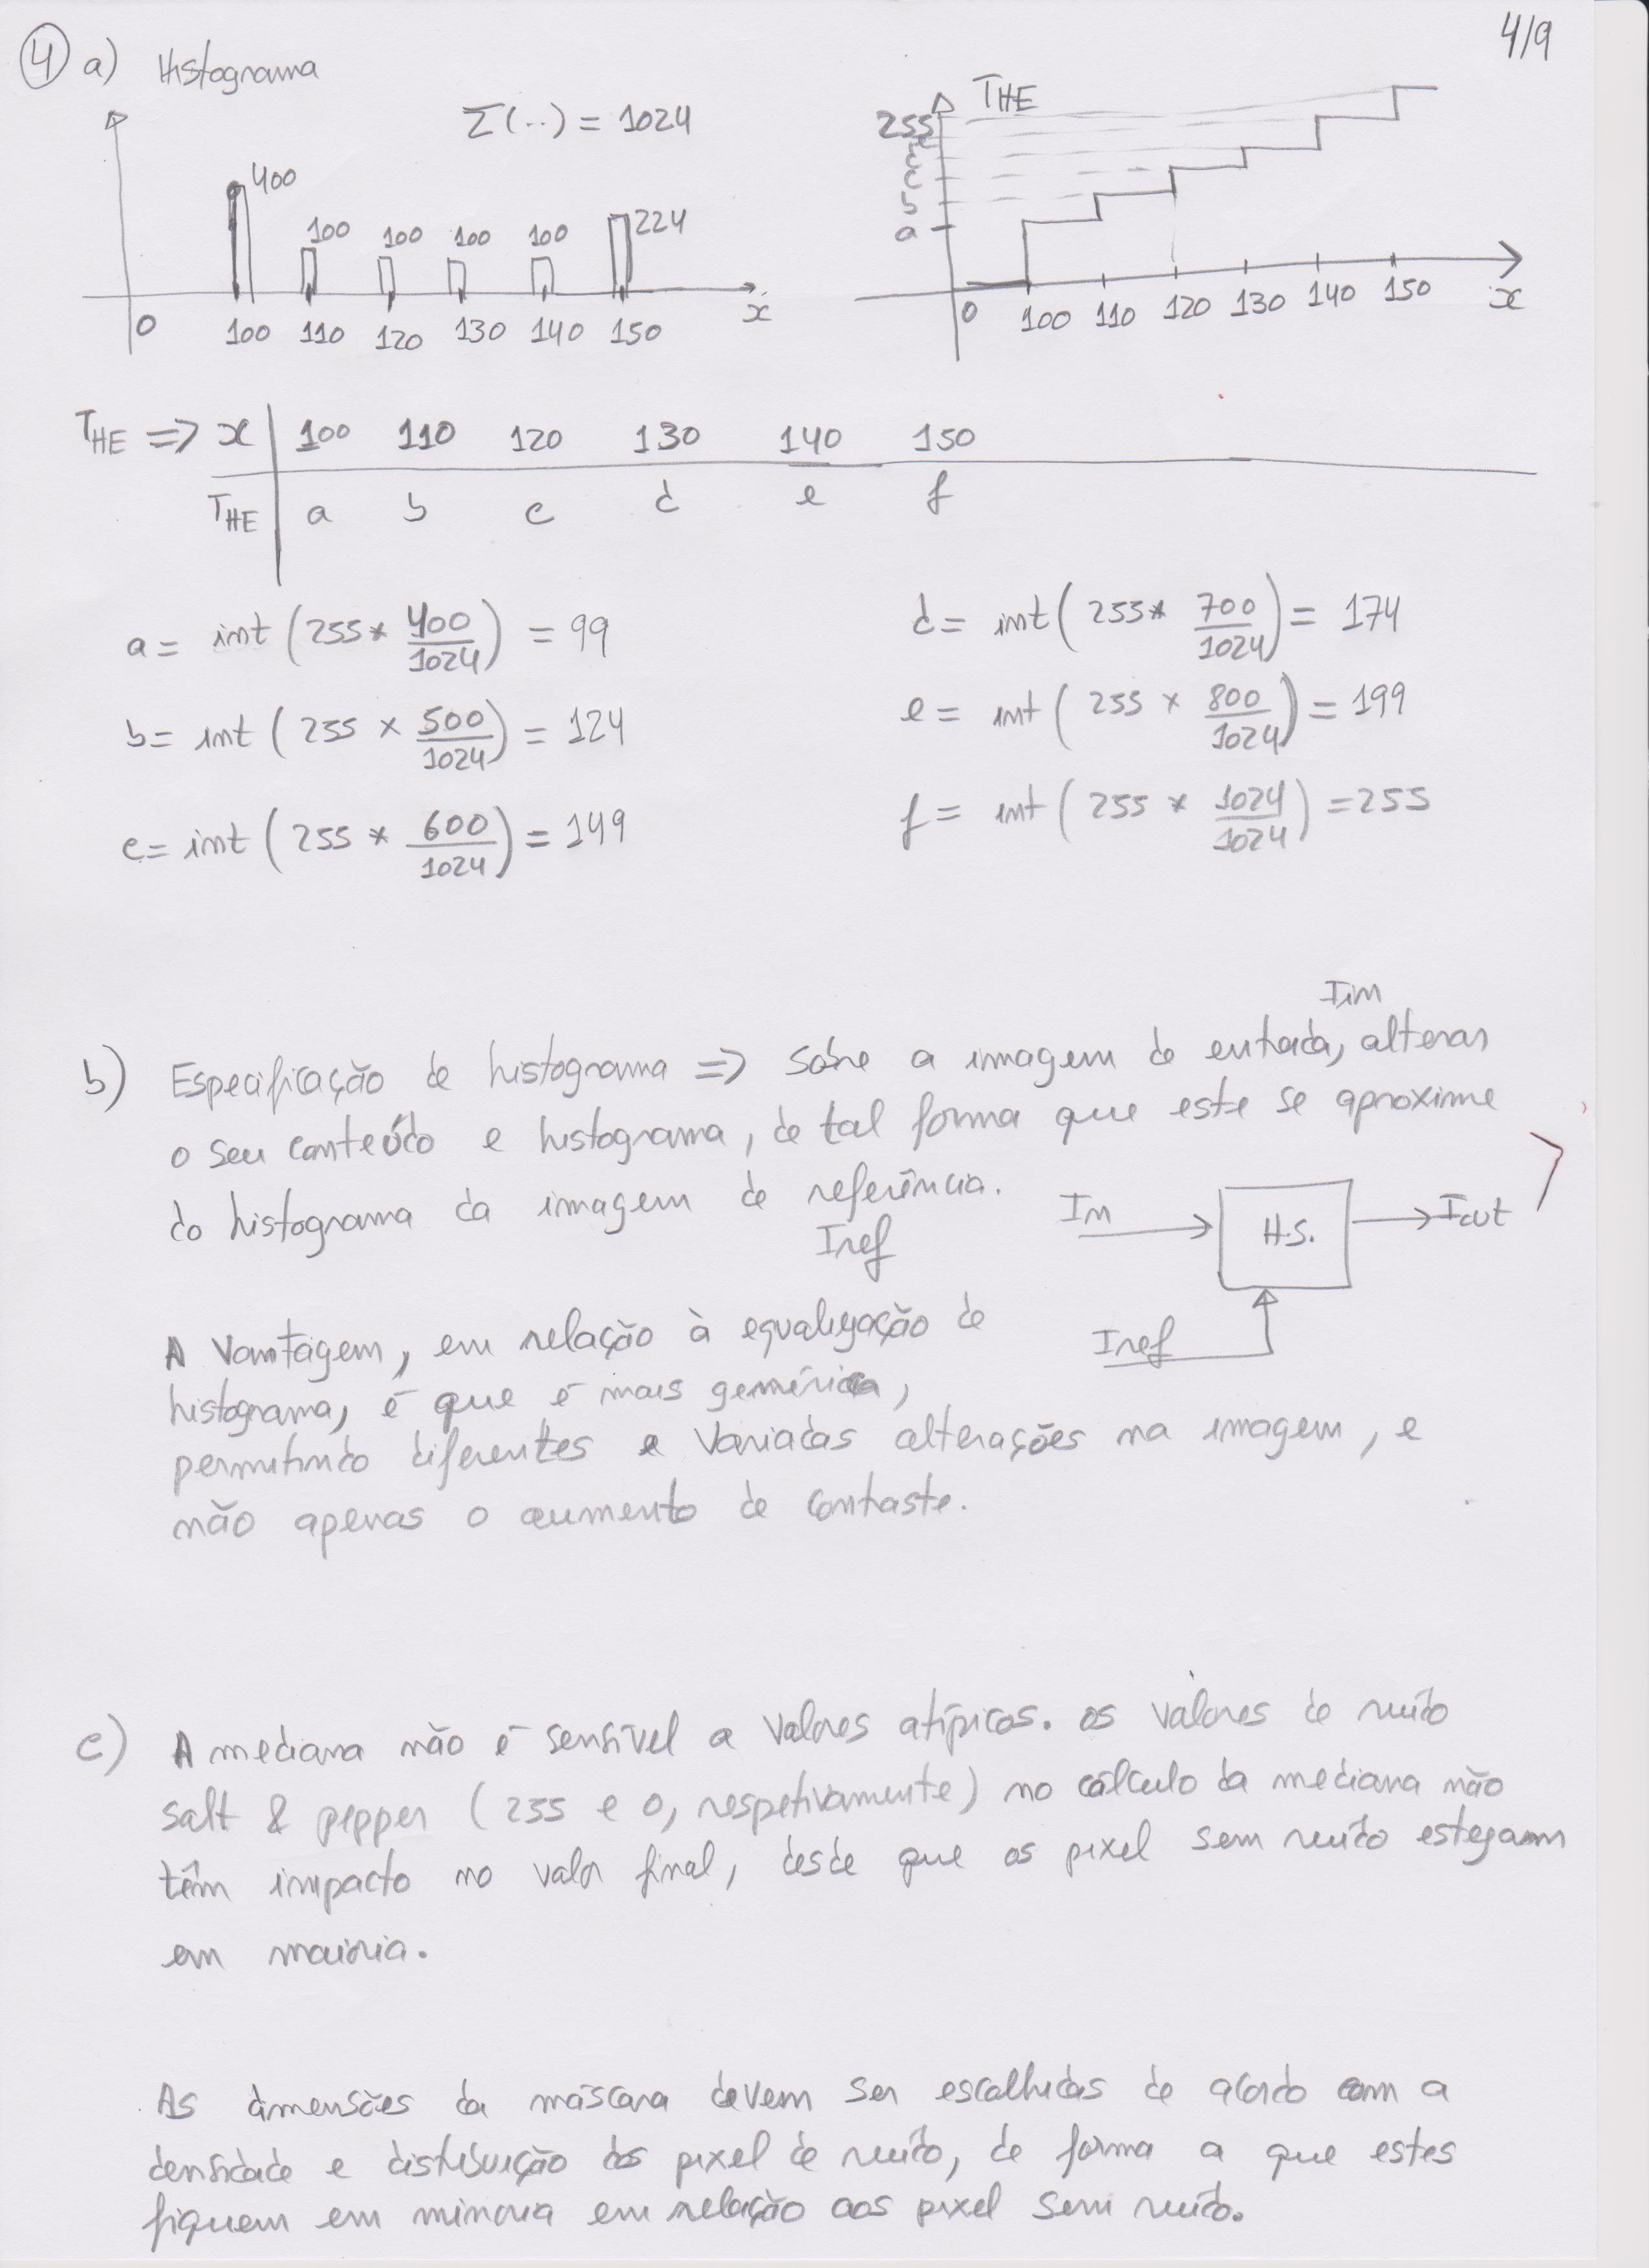 4/9
4 a) Histograma
Σ(..) = 1024
400
100 100 100 100
224
0 100 110 120 130 140 150 x
THE
255
e
d
c
b
a
0 100 110 120 130 140 150 x
THE => x 100 110 120 130 140 150
THE a b c d e f
a = int (255 * 400/1024) = 99
d = int (255 * 700/1024) = 174
b = int (255 × 500/1024) = 124
e = int (255 × 800/1024) = 199
c = int (255 * 600/1024) = 149
f = int (255 * 1024/1024) = 255
Iin
b) Especificação de histograma => Sobre a imagem de entrada, alterar
o seu conteúdo e histograma, de tal forma que este se aproxime
do histograma da imagem de referência.
Iref
Iin H.S. Iout
Iref
A vantagem, em relação à equalização de
histograma, é que é mais genérica,
permitindo diferentes e variadas alterações na imagem, e
não apenas o aumento de contraste.
c) A mediana não é sensível a valores atípicos. Os valores de ruído
salt & pepper (255 e 0, respetivamente) no cálculo da mediana não
têm impacto no valor final, desde que os pixel sem ruído estejam
em maioria.
As dimensões da máscara devem ser escolhidas de acordo com a
densidade e distribuição dos pixel de ruído, de forma a que estes
fiquem em minoria em relação aos pixel sem ruído.